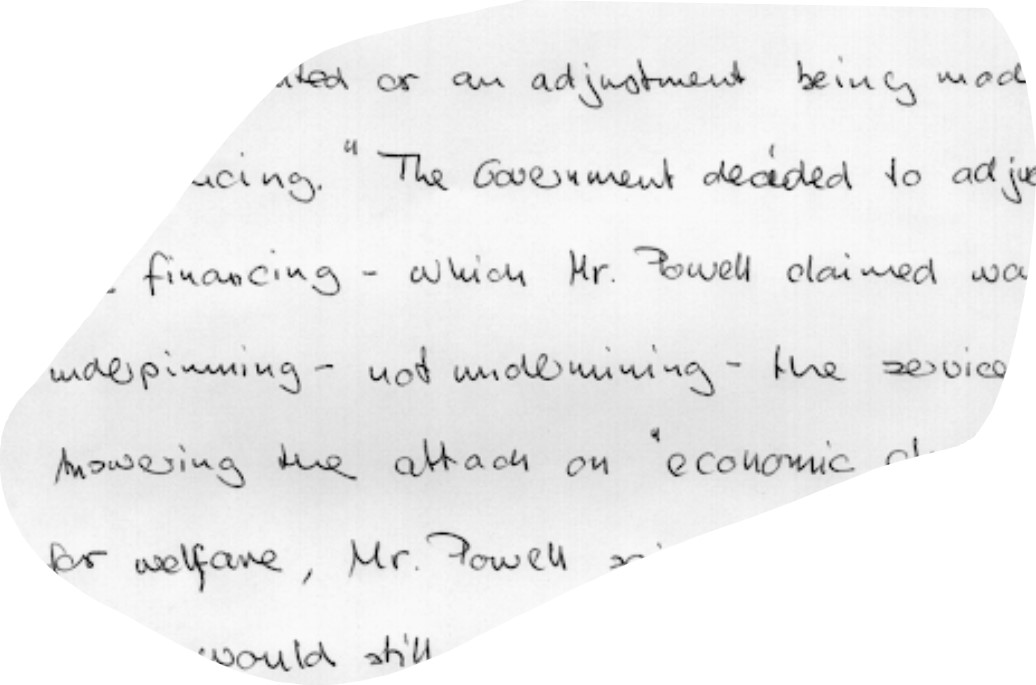 or an adjustment being
" The Government decided to
financing - which Mr. Powell claimed
underpinning - not undermining - the service
Answering the attack on "economic
for welfare, Mr. Powell
would still